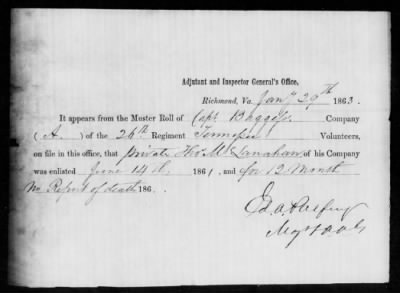 Adjutant and Inspector General's Office,
Richmond, Va. Jany 29th 1863.
It appears from the Muster Roll of Capt Company
(A.) of the 26th Regiment Volunteers,
on file in this office, that private Thos McLanahan of his Company
was enlisted June 14th 1861, and for 12 Month
No Report of death 186 .
Ed. A.